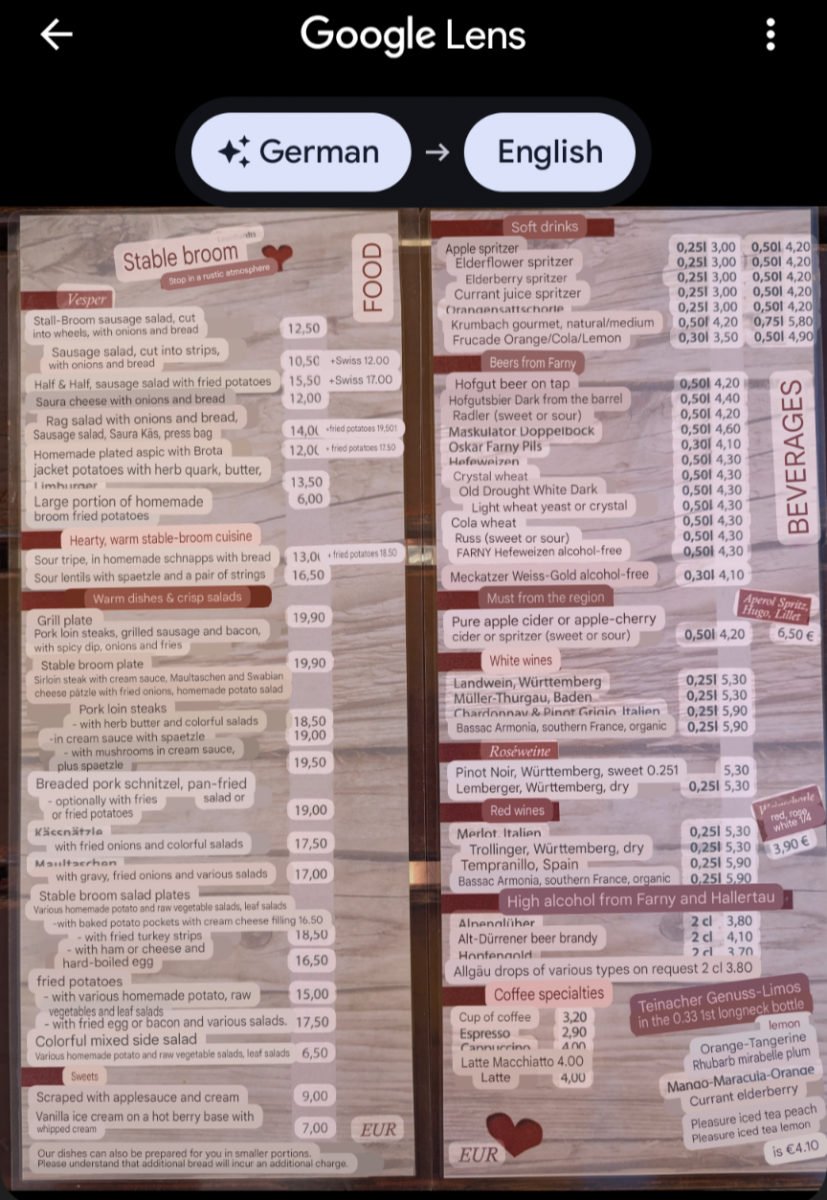 Google Lens
German → English
Stable broom
Stop in a rustic atmosphere
FOOD
Vesper
Stall-Broom sausage salad, cut
into wheels, with onions and bread 12,50
Sausage salad, cut into strips,
with onions and bread 10,50 +Swiss 12.00
Half & Half, sausage salad with fried potatoes 15,50 +Swiss 17.00
Saura cheese with onions and bread 12,00
Rag salad with onions and bread,
Sausage salad, Saura Käs, press bag 14,0( +fried potatoes 19,501
Homemade plated aspic with Brota 12,0( + fried potatoes 17.50
jacket potatoes with herb quark, butter,
Limburger 13,50
Large portion of homemade 6,00
broom fried potatoes
Hearty, warm stable-broom cuisine
Sour tripe, in homemade schnapps with bread 13,0( + fried potatoes 18.50
Sour lentils with spaetzle and a pair of strings 16,50
Warm dishes & crisp salads
Grill plate 19,90
Pork loin steaks, grilled sausage and bacon,
with spicy dip, onions and fries
Stable broom plate 19,90
Sirloin steak with cream sauce, Maultaschen and Swabian
cheese pätzle with fried onions, homemade potato salad
Pork loin steaks
- with herb butter and colorful salads 18,50
-in cream sauce with spaetzle 19,00
- with mushrooms in cream sauce,
plus spaetzle 19,50
Breaded pork schnitzel, pan-fried
- optionally with fries salad or
or fried potatoes 19,00
Käsespätzle
with fried onions and colorful salads 17,50
Maultaschen
with gravy, fried onions and various salads 17,00
Stable broom salad plates
Various homemade potato and raw vegetable salads, leaf salads
-with baked potato pockets with cream cheese filling 16.50
- with fried turkey strips 18,50
- with ham or cheese and
hard-boiled egg 16,50
fried potatoes
- with various homemade potato, raw 15,00
vegetables and leaf salads
- with fried egg or bacon and various salads. 17,50
Colorful mixed side salad
Various homemade potato and raw vegetable salads, leaf salads 6,50
Sweets
Scraped with applesauce and cream 9,00
Vanilla ice cream on a hot berry base with
whipped cream 7,00
EUR
Our dishes can also be prepared for you in smaller portions.
Please understand that additional bread will incur an additional charge.
Soft drinks
Apple spritzer 0,25l 3,00 0,50l 4,20
Elderflower spritzer 0,25l 3,00 0,50l 4,20
Elderberry spritzer 0,25l 3,00 0,50l 4,20
Currant juice spritzer 0,25l 3,00 0,50l 4,20
Orangensaftschorle 0,25l 3,00 0,50l 4,20
Krumbach gourmet, natural/medium 0,50l 4,20 0,75l 5,80
Frucade Orange/Cola/Lemon 0,30l 3,50 0,50l 4,90
BEVERAGES
Beers from Farny
Hofgut beer on tap 0,50l 4,20
Hofgutsbier Dark from the barrel 0,50l 4,40
Radler (sweet or sour) 0,50l 4,20
Maskulator Doppelbock 0,50l 4,60
Oskar Farny Pils 0,30l 4,10
Hefeweizen 0,50l 4,30
Crystal wheat 0,50l 4,30
Old Drought White Dark 0,50l 4,30
Light wheat yeast or crystal 0,50l 4,30
Cola wheat 0,50l 4,30
Russ (sweet or sour) 0,50l 4,30
FARNY Hefeweizen alcohol-free 0,50l 4,30
Meckatzer Weiss-Gold alcohol-free 0,30l 4,10
Must from the region
Pure apple cider or apple-cherry
cider or spritzer (sweet or sour) 0,50l 4,20
Aperol Spritz,
Hugo, Lillet
6,50 €
White wines
Landwein, Württemberg 0,25l 5,30
Müller-Thurgau, Baden 0,25l 5,30
Chardonnay & Pinot Grigio, Italien 0,25l 5,90
Bassac Armonia, southern France, organic 0,25l 5,90
Roséweine
Pinot Noir, Württemberg, sweet 0.251 5,30
Lemberger, Württemberg, dry 0,25l 5,30
Red wines
Merlot, Italien 0,25l 5,30
Trollinger, Württemberg, dry 0,25l 5,30
Tempranillo, Spain 0,25l 5,90
Bassac Armonia, southern France, organic 0,25l 5,90
red, rose,
white 1/4
3,90 €
High alcohol from Farny and Hallertau
Alpenglüher 2 cl 3,80
Alt-Dürrener beer brandy 2 cl 4,10
Hopfengold 2 cl 3,70
Allgäu drops of various types on request 2 cl 3.80
Coffee specialties
Cup of coffee 3,20
Espresso 2,90
Cappuccino 4,00
Latte Macchiatto 4.00
Latte 4,00
EUR
Teinacher Genuss-Limos
in the 0.33 1st longneck bottle
lemon
Orange-Tangerine
Rhubarb mirabelle plum
Mango-Maracuja-Orange
Currant elderberry
Pleasure iced tea peach
Pleasure iced tea lemon
is €4.10